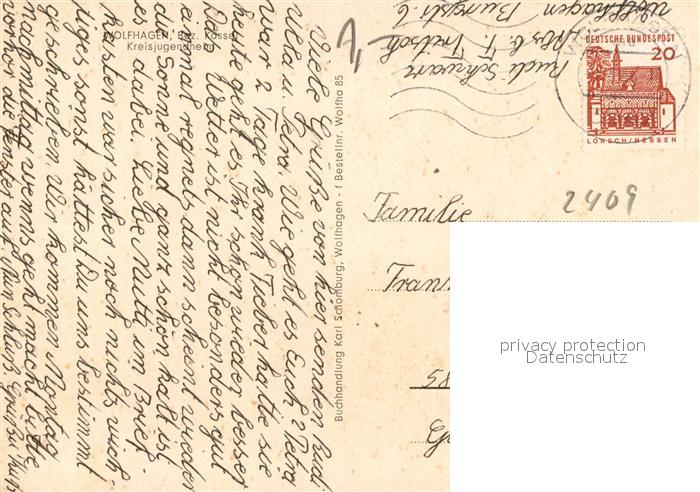 WOLFHAGEN, Bez. Kassel
Kreisjugendheim
Viele Grüße von hier senden Rudi
Ulla u. Petra. Wie geht es Euch? Petra
war 2 Tage krank, Fieber hatte sie
heute geht es Ihr schon wieder besser
Das Wetter ist nicht besonders gut
einmal regnets, dann scheint wieder
die Sonne und ganz schön kalt ist
es dabei. Liebe Mutti im Brief
kasten war sicher noch nichts wich
tiges sonst hättest Du uns bestimmt
geschrieben. Wir kommen Montag
nachmittag, wenns geht macht bitte
vorher die Fenster auf. Nun Schluß Gruß
Buchhandlung Karl Schomburg, Wolfhagen - f Bestellnr. Wolfha 85
Rudi Schwarz
Wolfhagen Burgstr. 6
DEUTSCHE BUNDESPOST
20
LORSCH/HESSEN
2409
Familie
58
privacy protection
Datenschutz